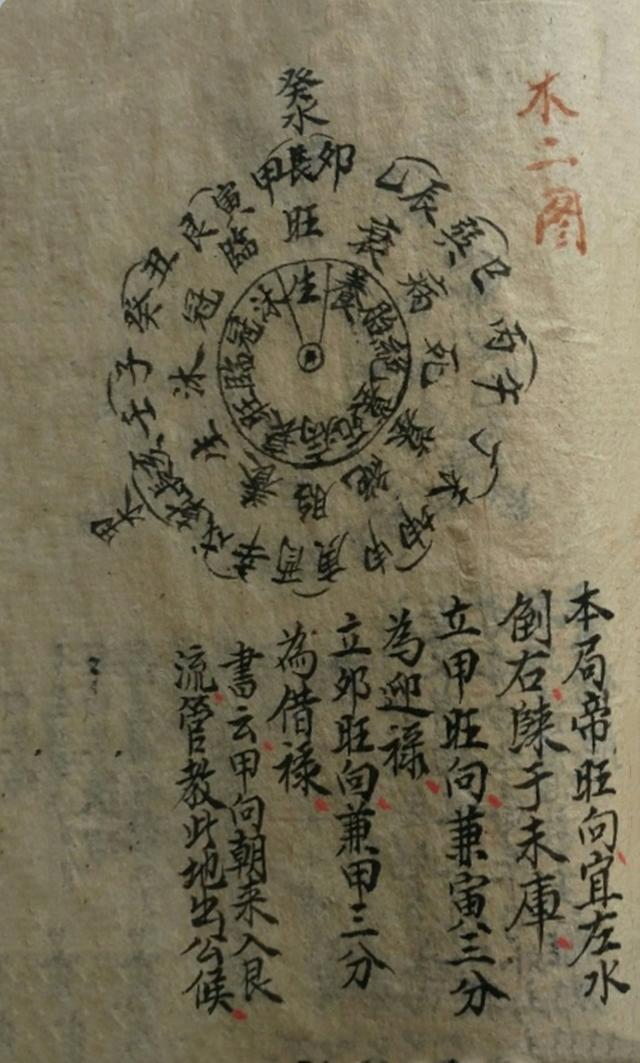 木二图
癸水
甲長卯
乙辰
巽巳
丙午
丁未
坤申
庚酉
辛戌
乾亥
壬子
癸丑
艮寅
甲木
旺
衰
病
死
絶
胎
養
沐
冠
臨
生
養
胎
絕
病
旺
臨
冠
沐
本局帝旺向宜左水
倒右歸于未庫
立甲旺向兼寅三分
為迎祿
立卯旺向兼甲三分
為借祿
書云甲向朝來入艮
流管教此地出公候